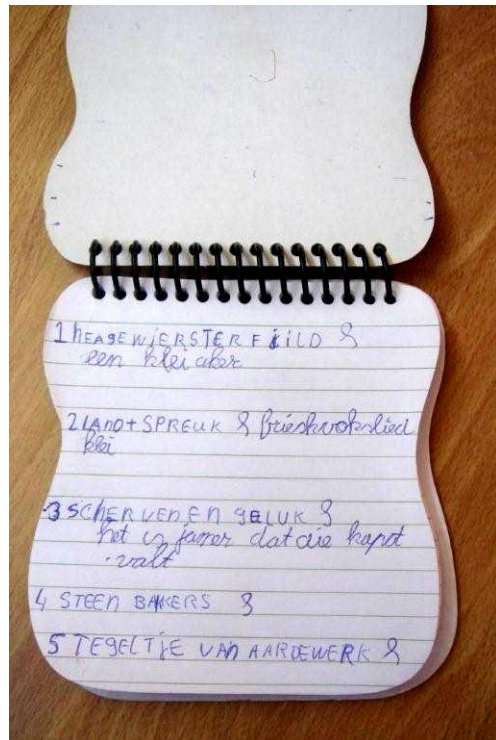 1 hEAGEWIERSTERFJILD &
een klei aker
2 LAND + SPREUK & frieskvokslied
klei
3 SChERVEN EN GELUK &
het is jamer dat die kapot
valt
4 STEEN BAKKERS &
5 TEGELTJE VAN AARDEWERK &